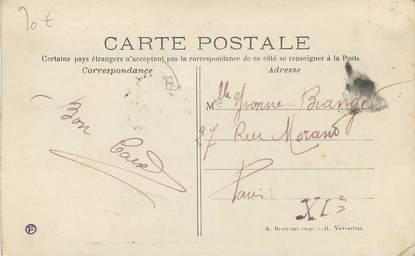 20 €
CARTE POSTALE
Certains pays étrangers n'acceptant pas la correspondance de ce côté se renseigner à la Poste
Correspondance
Adresse
Bon
Mlle Yvonne
27 Rue Morand
Paris
XIe
imp. Versailles